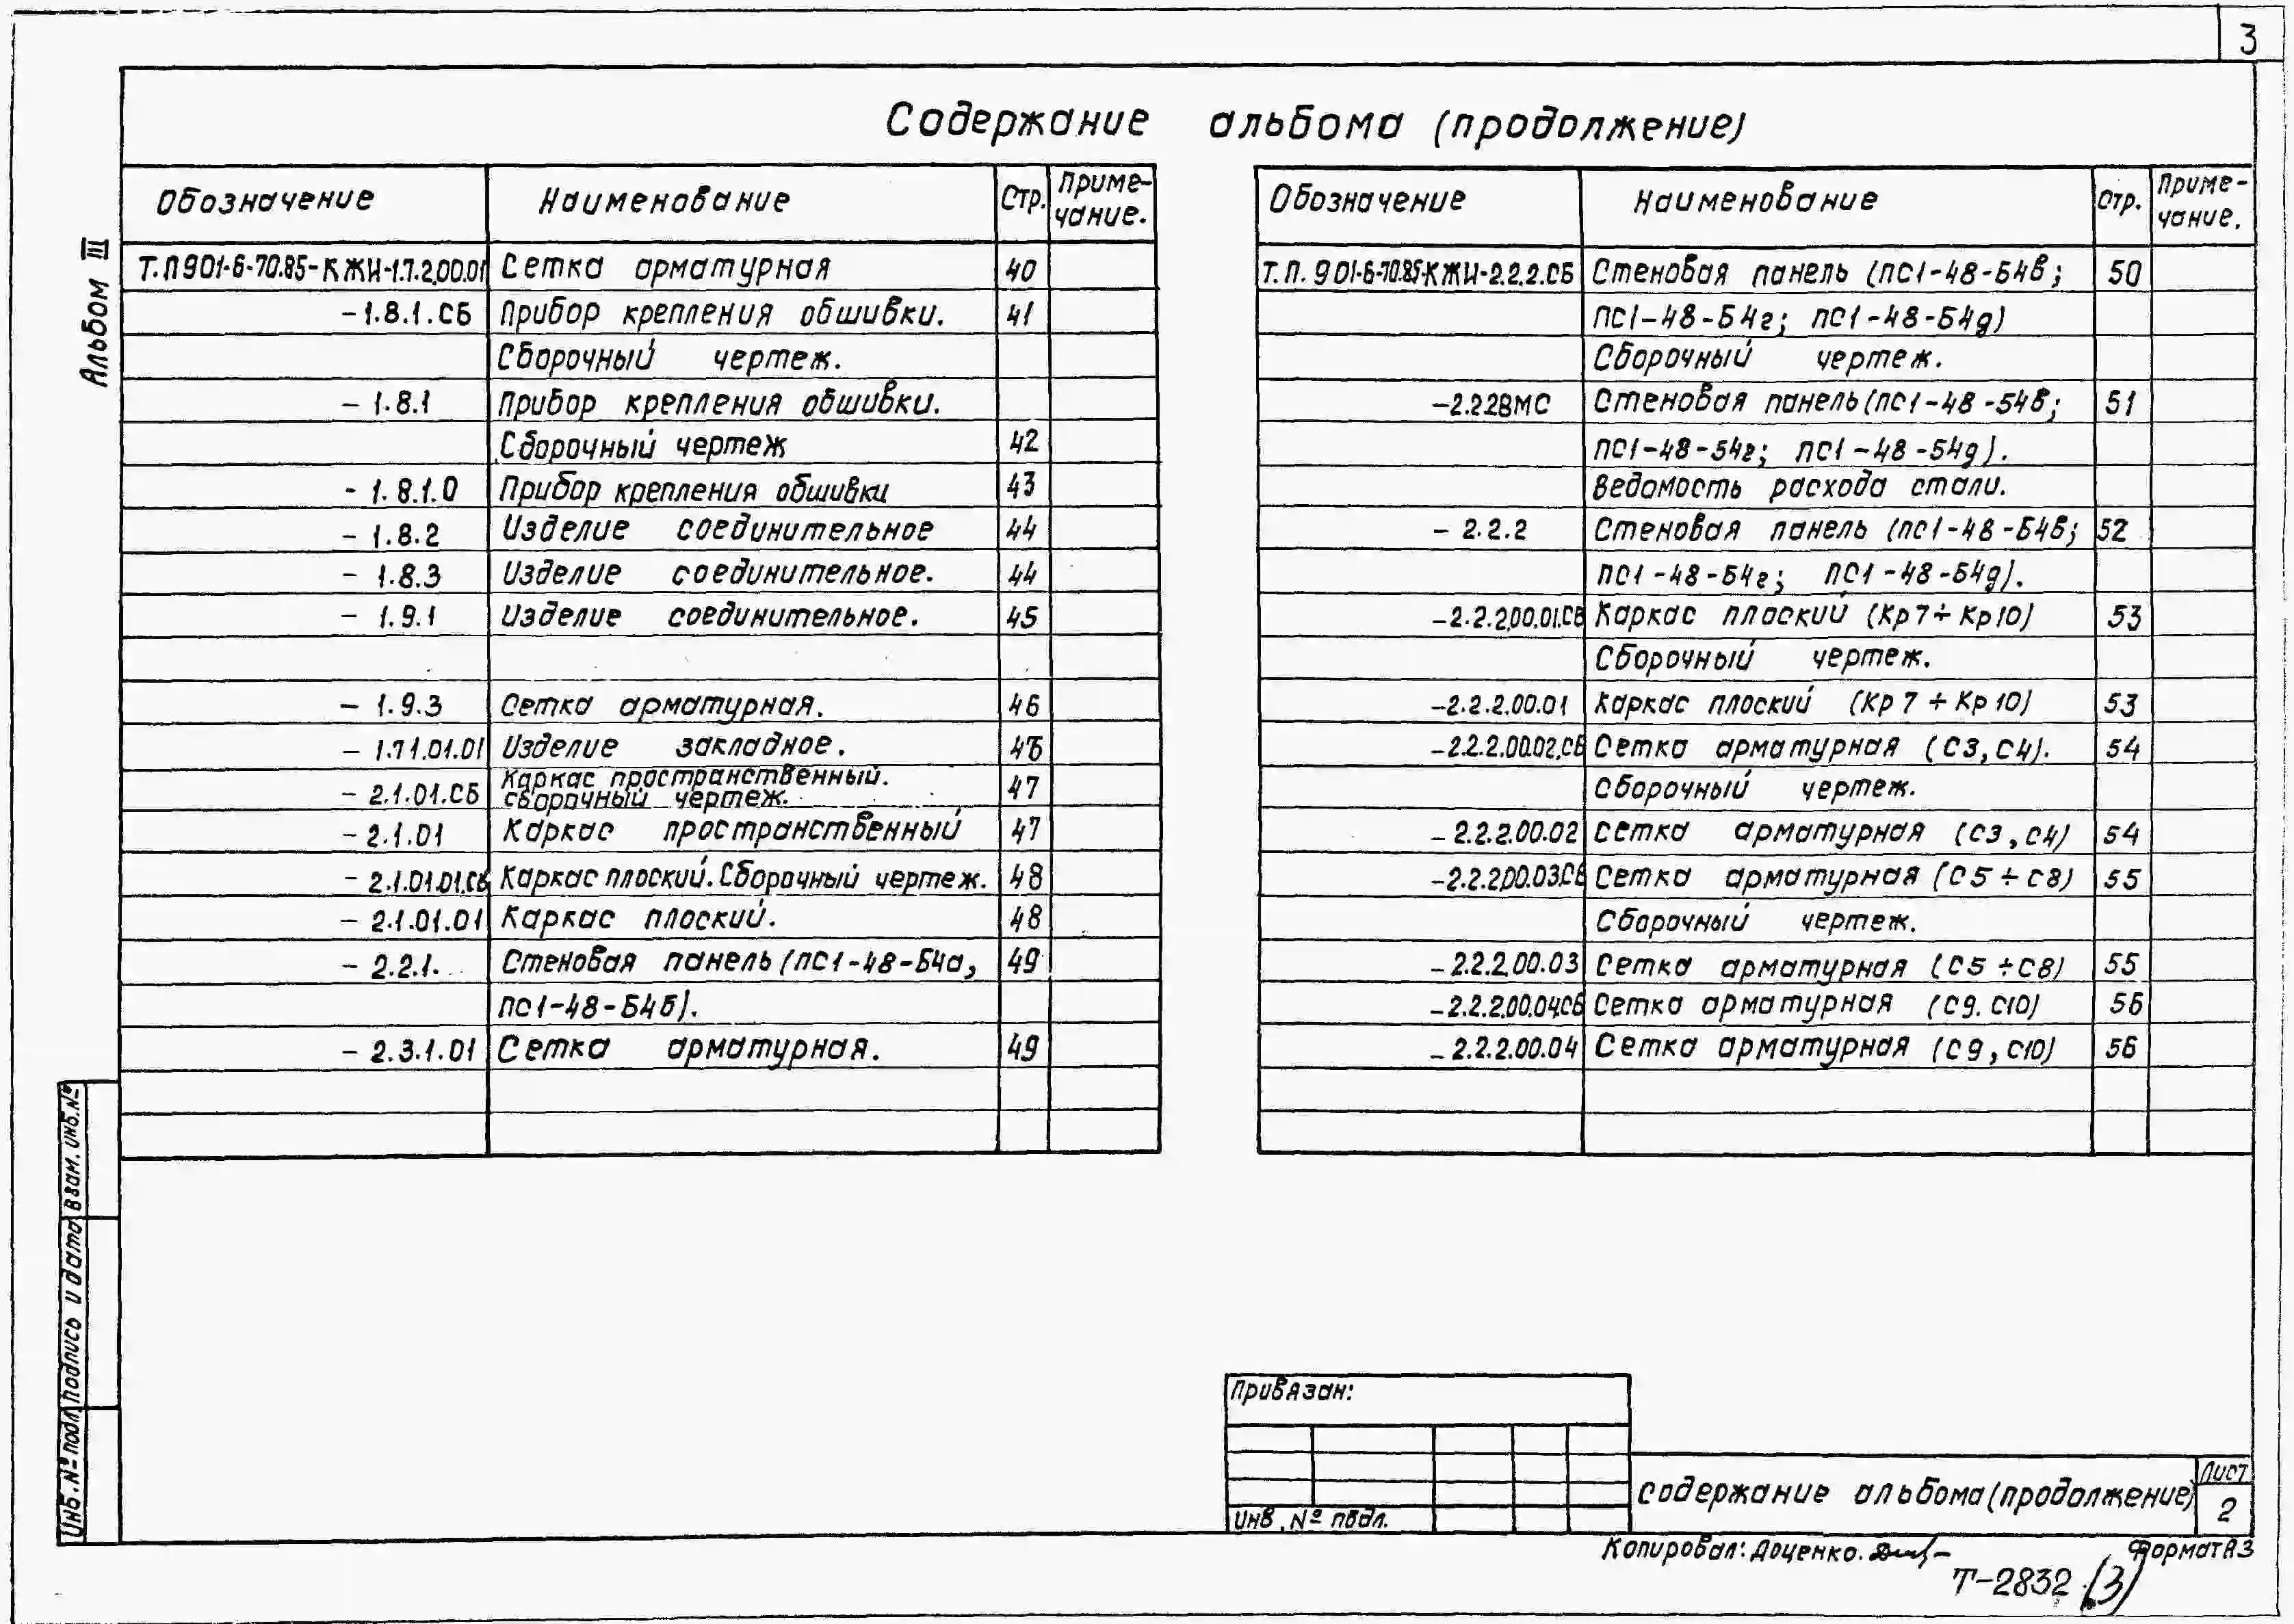 3
Содержание альбома (продолжение)
Альбом III
Обозначение Наименование Стр. Приме-
чание.
Т.П 901-6-70.85-КЖИ-1.7.2.00.01 Сетка арматурная 40
-1.8.1.СБ Прибор крепления обшивки. 41
Сборочный чертеж.
- 1.8.1 Прибор крепления обшивки.
Сборочный чертеж 42
- 1.8.1.0 Прибор крепления обшивки 43
- 1.8.2 Изделие соединительное 44
- 1.8.3 Изделие соединительное. 44
- 1.9.1 Изделие соединительное. 45
- 1.9.3 Сетка арматурная. 46
- 1.11.01.01 Изделие закладное. 46
- 2.1.01.СБ Каркас пространственный.
сборочный чертеж. 47
- 2.1.01 Каркас пространственный 47
- 2.1.01.01.СБ Каркас плоский. Сборочный чертеж. 48
- 2.1.01.01 Каркас плоский. 48
- 2.2.1. Стеновая панель (ПС1-48-Б4а, 49
ПС1-48-Б4б).
- 2.3.1.01 Сетка арматурная. 49
Обозначение Наименование Стр. Приме-
чание.
Т.П. 901-6-70.85-КЖИ-2.2.2.СБ Стеновая панель (ПС1-48-Б4в; 50
ПС1-48-Б4г; ПС1-48-Б4д)
Сборочный чертеж.
-2.2.2ВМС Стеновая панель (ПС1-48-Б4в; 51
ПС1-48-Б4г; ПС1-48-Б4д).
Ведомость расхода стали.
- 2.2.2 Стеновая панель (ПС1-48-Б4в; 52
ПС1-48-Б4г; ПС1-48-Б4д).
-2.2.2.00.01.СБ Каркас плоский (Кр7÷Кр10) 53
Сборочный чертеж.
-2.2.2.00.01 Каркас плоский (Кр 7 ÷ Кр 10) 53
-2.2.2.00.02.СБ Сетка арматурная (С3, С4). 54
Сборочный чертеж.
- 2.2.2.00.02 Сетка арматурная (С3, С4) 54
-2.2.2.00.03.СБ Сетка арматурная (С5 ÷ С8) 55
Сборочный чертеж.
-2.2.2.00.03 Сетка арматурная (С5 ÷ С8) 55
-2.2.2.00.04.СБ Сетка арматурная (С9. С10) 56
- 2.2.2.00.04 Сетка арматурная (С9, С10) 56
Инв. № подл. Подпись и дата Взам. инв. №
Привязан:
Инв. № подл.
Содержание альбома (продолжение)
Лист
2
Копировал: Доценко.
Формат А3
Т-2832 (3)